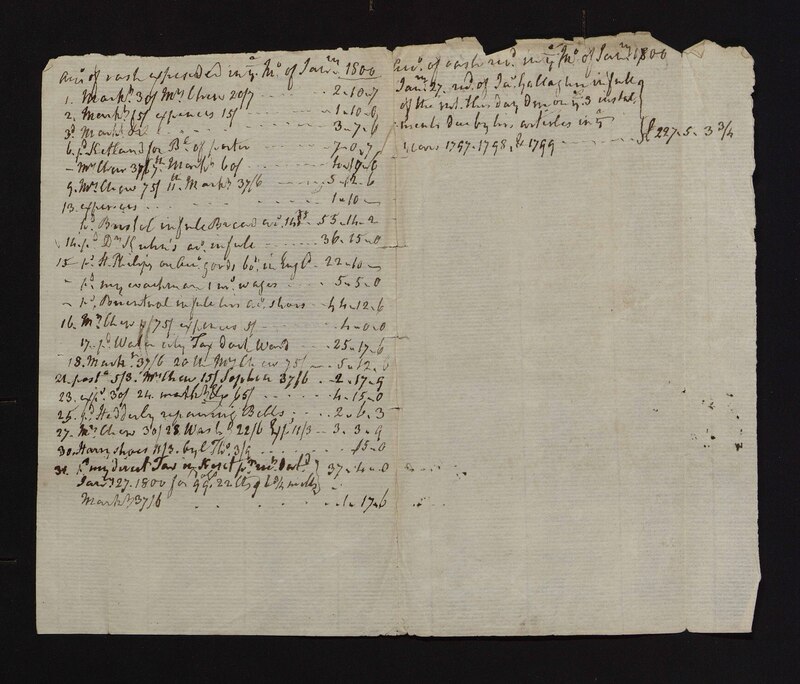 Acco. of cash expended in ye Mo. of Janry. 1800
1. Markt. 30/ Mrs Chew 20/7 - - - 2-10-7
2. Markt. 15/ expences 15/ - - - 1-10-0
3d. Markt. do - - - 3-7-6
6. pd. Ketland for Bl. of porter - - - 7-0-7
- Mrs Chew 37/6 Markt. 60/ - - - 4-17-6
9. Mrs Chew 75/ 11th. Markt. 37/6 - - - 5-12-6
13. expences - - - 1-10-
pd. Bristol in full Bread acco. - 55-14-2
14. pd. Dr. Kuhn's aco. in full - - - 36-15-0
15 - pd. H. Philips on Acco. goods bo. in Engld - 22-10-
- pd. my coachman 1 mo. wages - - - 5-5-0
- pd. in full his aco. shoes - - - 44-12-6
16. Mrs Chew 75/ expences 5/ - - - 4-0-0
17. pd. Water city Tax Dock Ward - - - 25-17-6
18. Markt. 37/6 20th Mrs Chew 75/ - 5-12-6
21. posta. 5/3. Mrs Chew 15/ Sophia 37/6 - 2-17-9
23. exps. 30/ 24. markt. 65/ - - - 4-15-0
25. pd. Hedderly repairing Bells - - - 2-6-3
27. Mrs Chew 30/ 28. Wash. 22/6 Exps. 11/3 - 3-3-9
30. Harry shoes 11/3. by C Tho. 3/9 - - - 15-0
31. pd. my direct Tax 37-4-0
Janry 27. 1800 for
Markt. 37/6 - - - 1-17-6
Acco. of cash recd. in ye Mo. of Janry. 1800
Janry. 27. recd. of Jas. Gallagher in full
of the int. this day Due on ye 3 instal-
ments due by his articles in ye
years 1797. 1798, & 1799 - - - £ 227-5-3 3/4